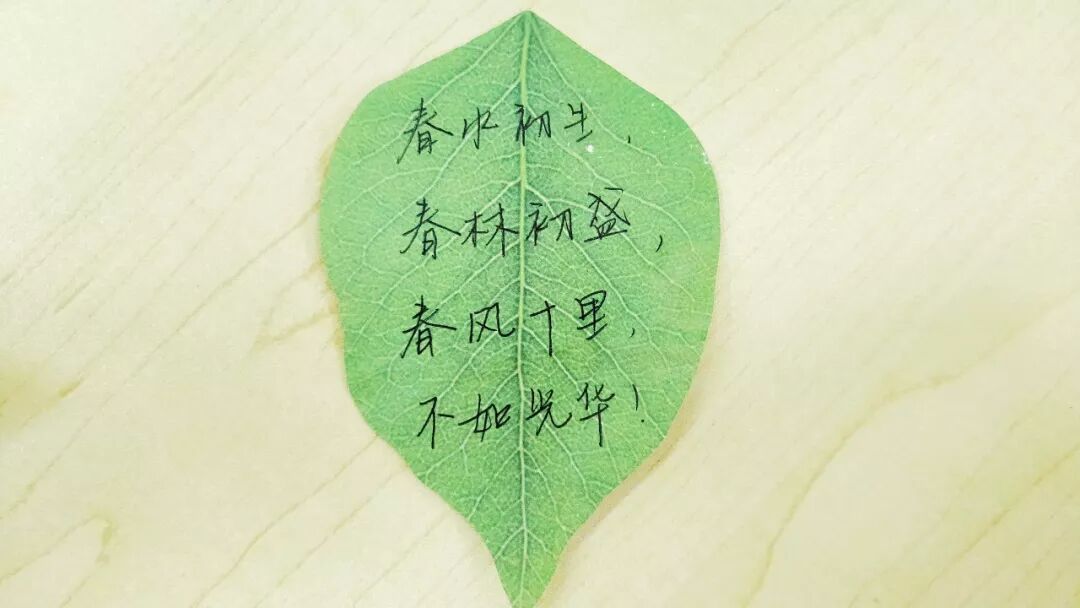 春水初生，
春林初盛，
春风十里，
不如光华！